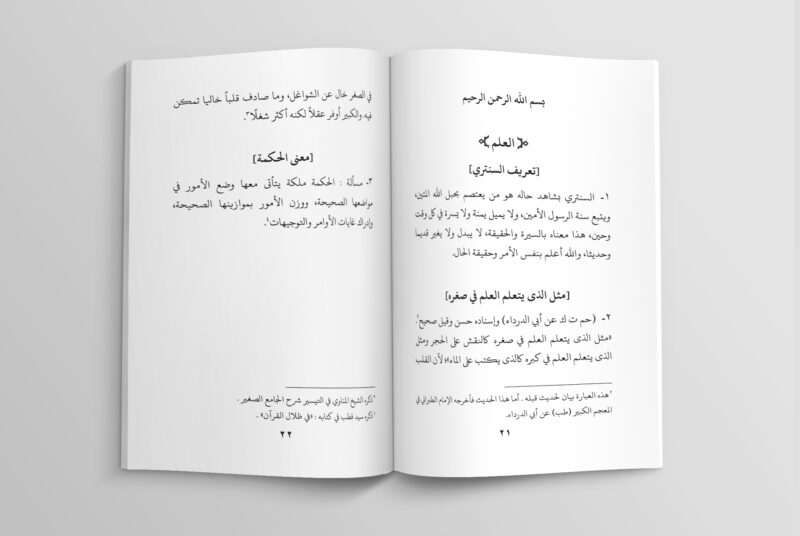 بسم الله الرحمن الرحيم
﴿العلم﴾
[تعريف السنتري]
١- السنتري بشاهد حاله هو من يعتصم بحبل الله المتين،
ويتبع سنة الرسول الأمين، ولا يميل يمنة ولا يسرة في كل وقت
وحين، هذا معناه بالسيرة والحقيقة، لا يبدل ولا يغير قديما
وحديثا، والله أعلم بنفس الأمر وحقيقة الحال.
[مثل الذى يتعلم العلم في صغره]
٢- (حم ت ك عن أبي الدرداء) وإسناده حسن وقيل صحيح٢.
«مثل الذى يتعلم العلم في صغره كالنقش على الحجر ومثل
الذى يتعلم العلم في كبره كالذى يكتب على الماء»؛ لأن القلب
٢ هذه العبارة بيان لحديث قبله . أما هذا الحديث فأخرجه الإمام الطبراني في
المعجم الكبير (طب) عن أبي الدرداء.
٢١
في الصغر خال عن الشواغل، وما صادف قلباً خاليا تمكن
فيه والكبير أوفر عقلاً لكنه أكثر شغلًا٣.
[معنى الحكمة]
٣- مسألة : الحكمة ملكة يتأتى معها وضع الأمور في
مواضعها الصحيحة، ووزن الأمور بموازينها الصحيحة،
وإدراك غايات الأوامر والتوجيهات٤.
٣ ذكره الشيخ المناوي في التيسير شرح الجامع الصغير .
٤ ذكره سيد قطب في كتابه : «في ظلال القرآن» .
٢٢